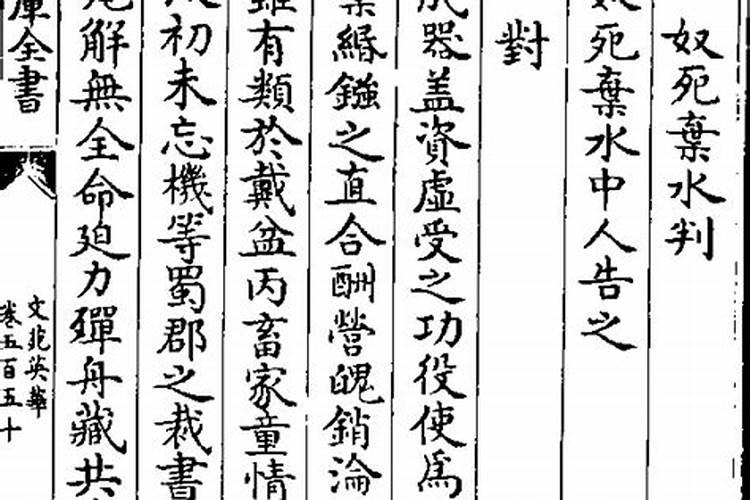 奴死棄水判
奴死棄水中人告之
對
成器盖資虛受之功役使爲
業緡鏹之直合酬營魄銷淪
雖有類於戴盆丙畜家童情
初未忘機等蜀郡之裁書
解無全命迫力殫舟藏共
庫全書
文苑英華
卷五百五十